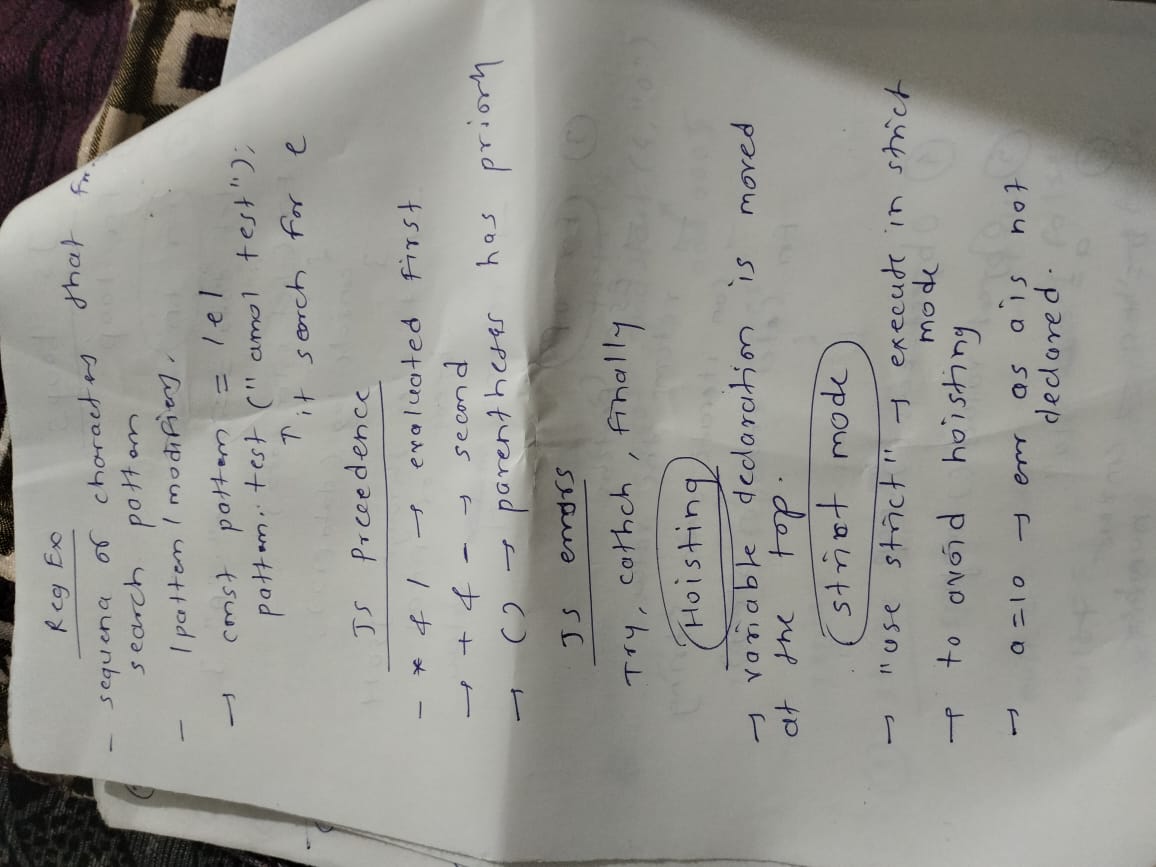 Reg Ex
- sequena of charactes that fm
search pattern
- /pattern/modifiers,
→ const pattern = /e/
pattern.test("amol test");
↑ it search for e
JS Preceedence
- * & / → evaluated first
→ + & - → second
→ () → parentheses has priorty
JS errors
Try, cathch, finally
Hoisting
→ variable declaration is moved
at the top.
strict mode
→ "use strict" → execute in strict
mode
→ to avoid hoisting
→ a=10 → error as a is not
declared.